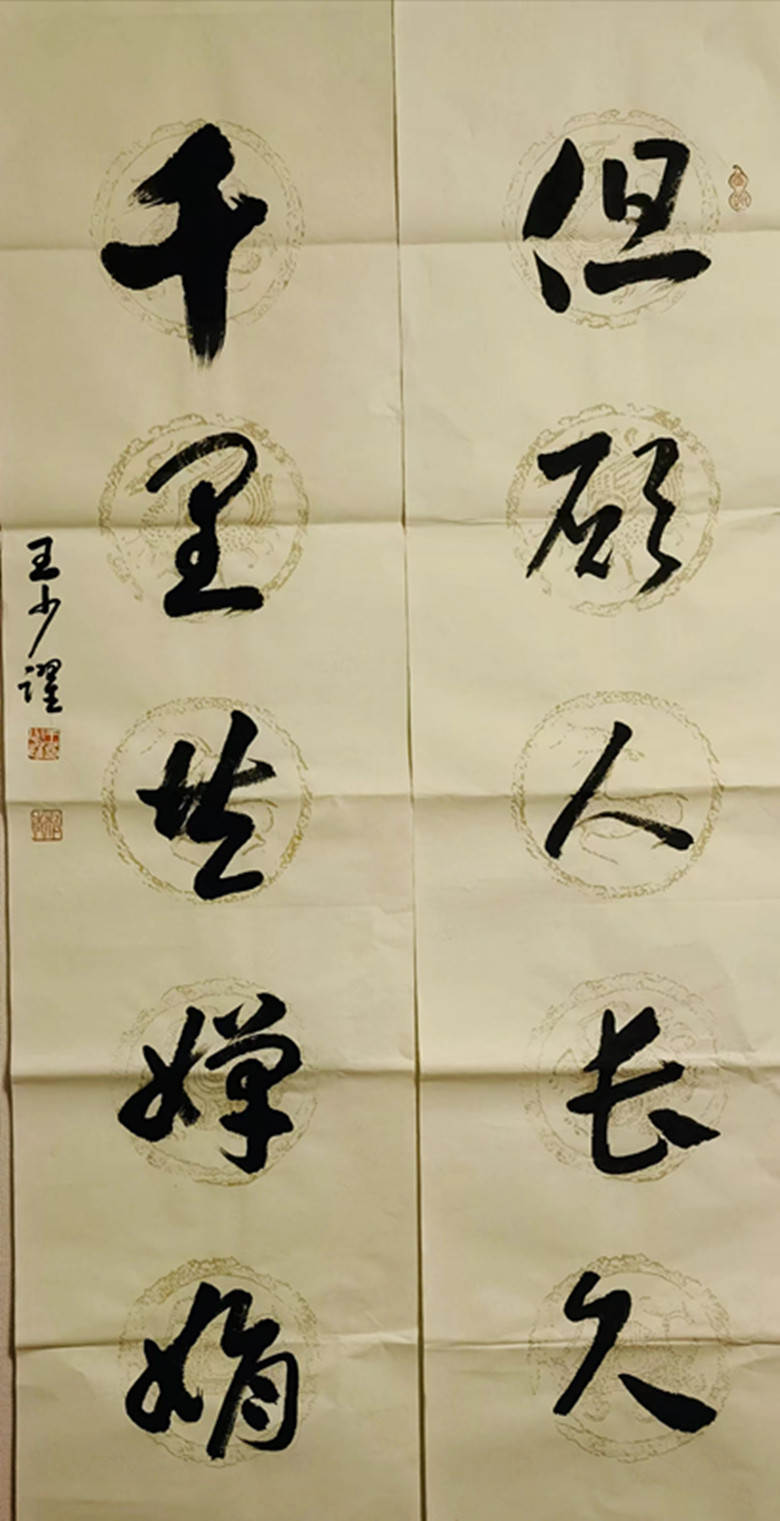 但愿人长久
千里共婵娟
王少